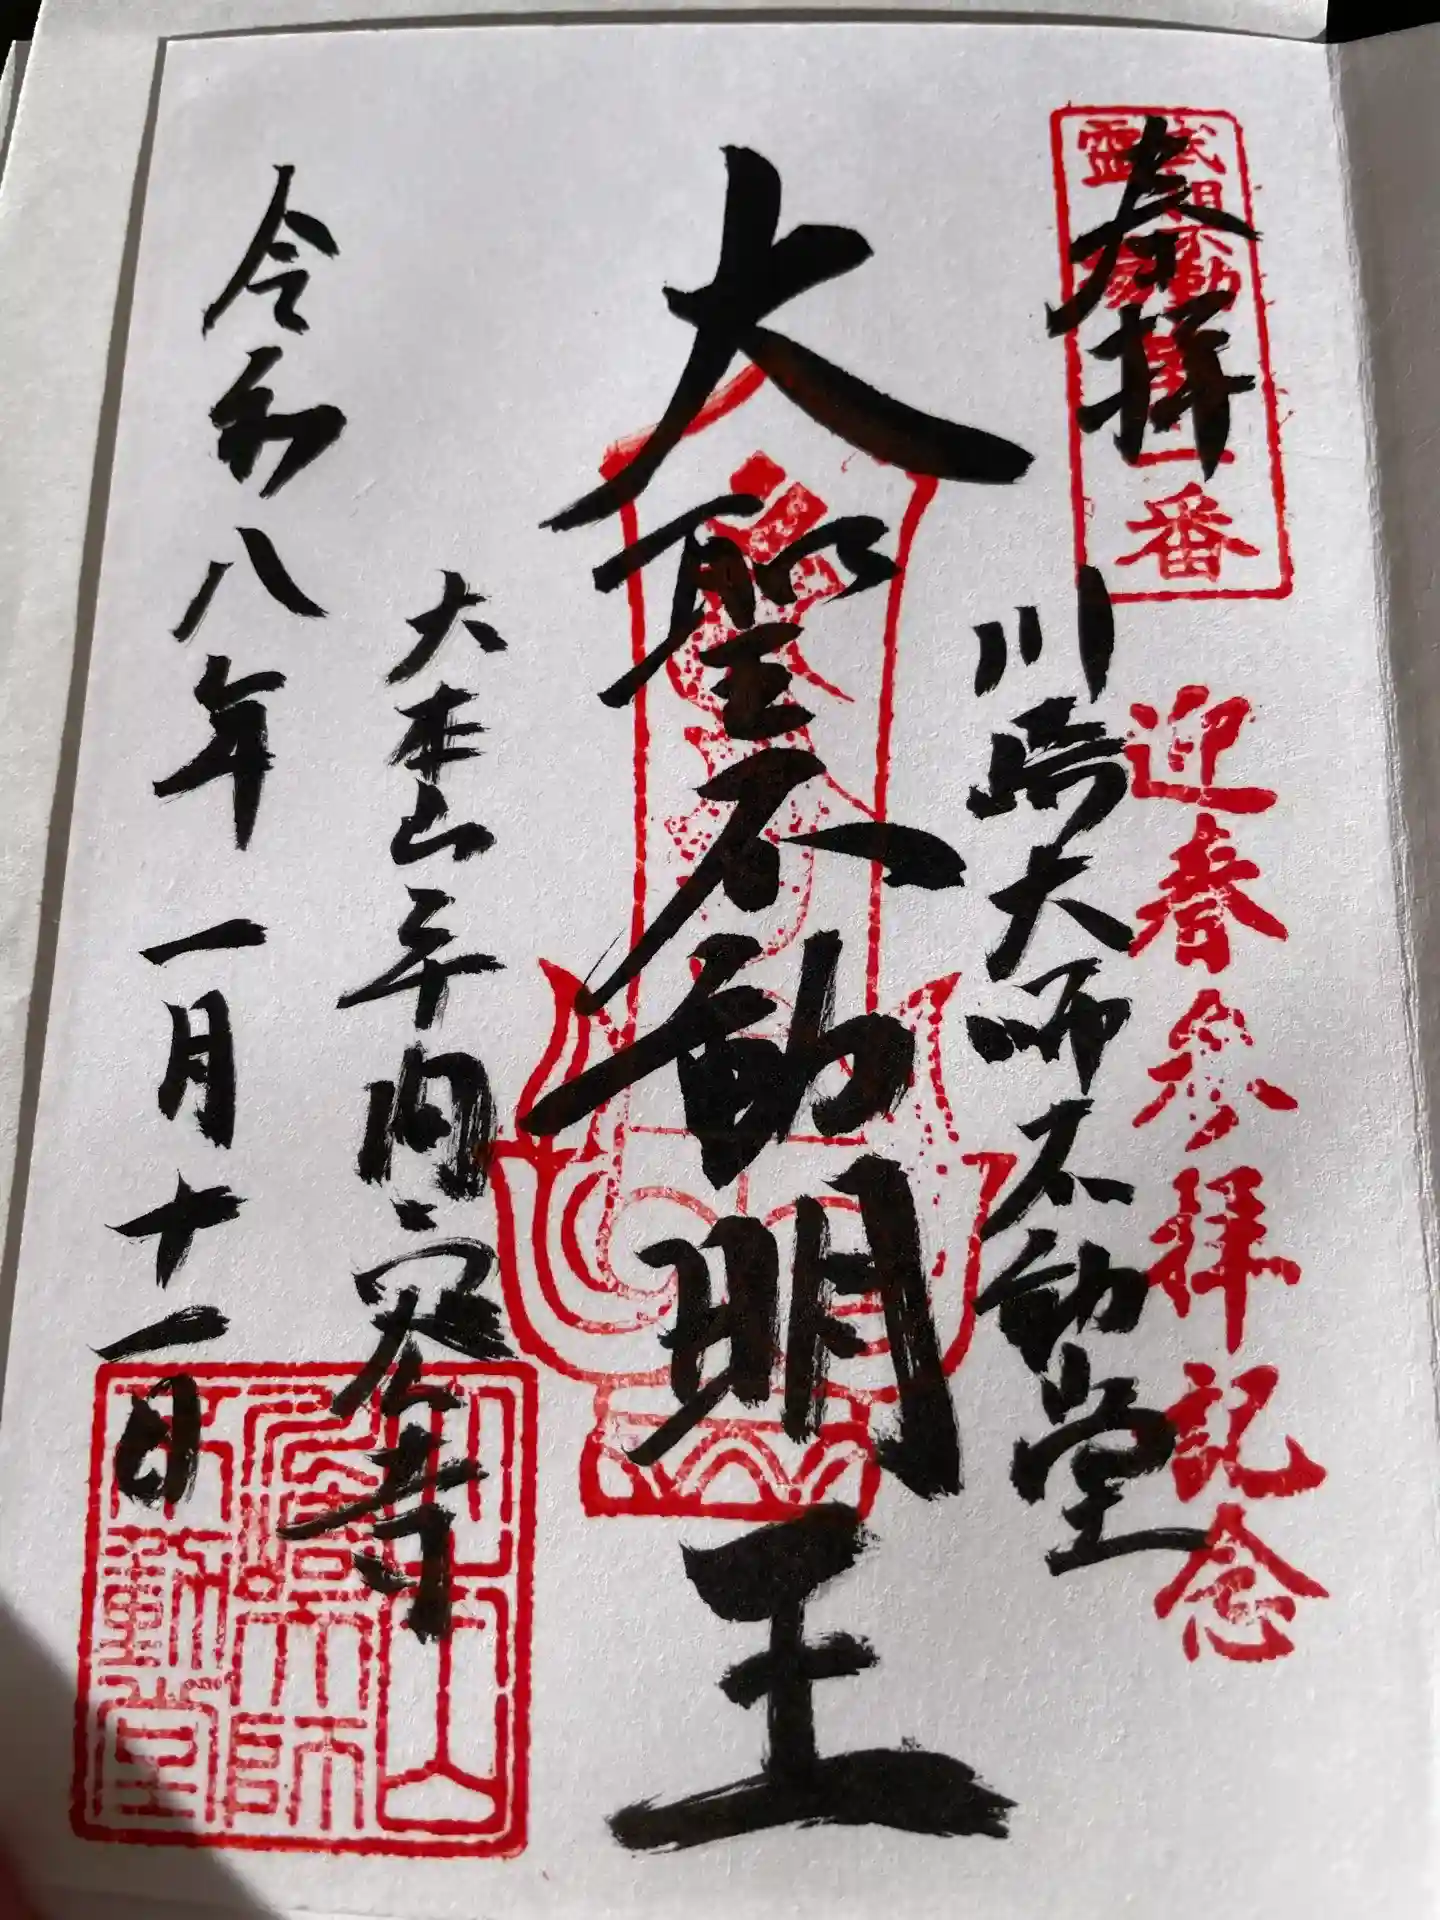 奉拝
武相不動
霊
番
迎春参拝記念
川崎大師不動堂
大聖不動明王
大本山平間寺
令和八年一月十一日
大本山
川崎大師
不動堂